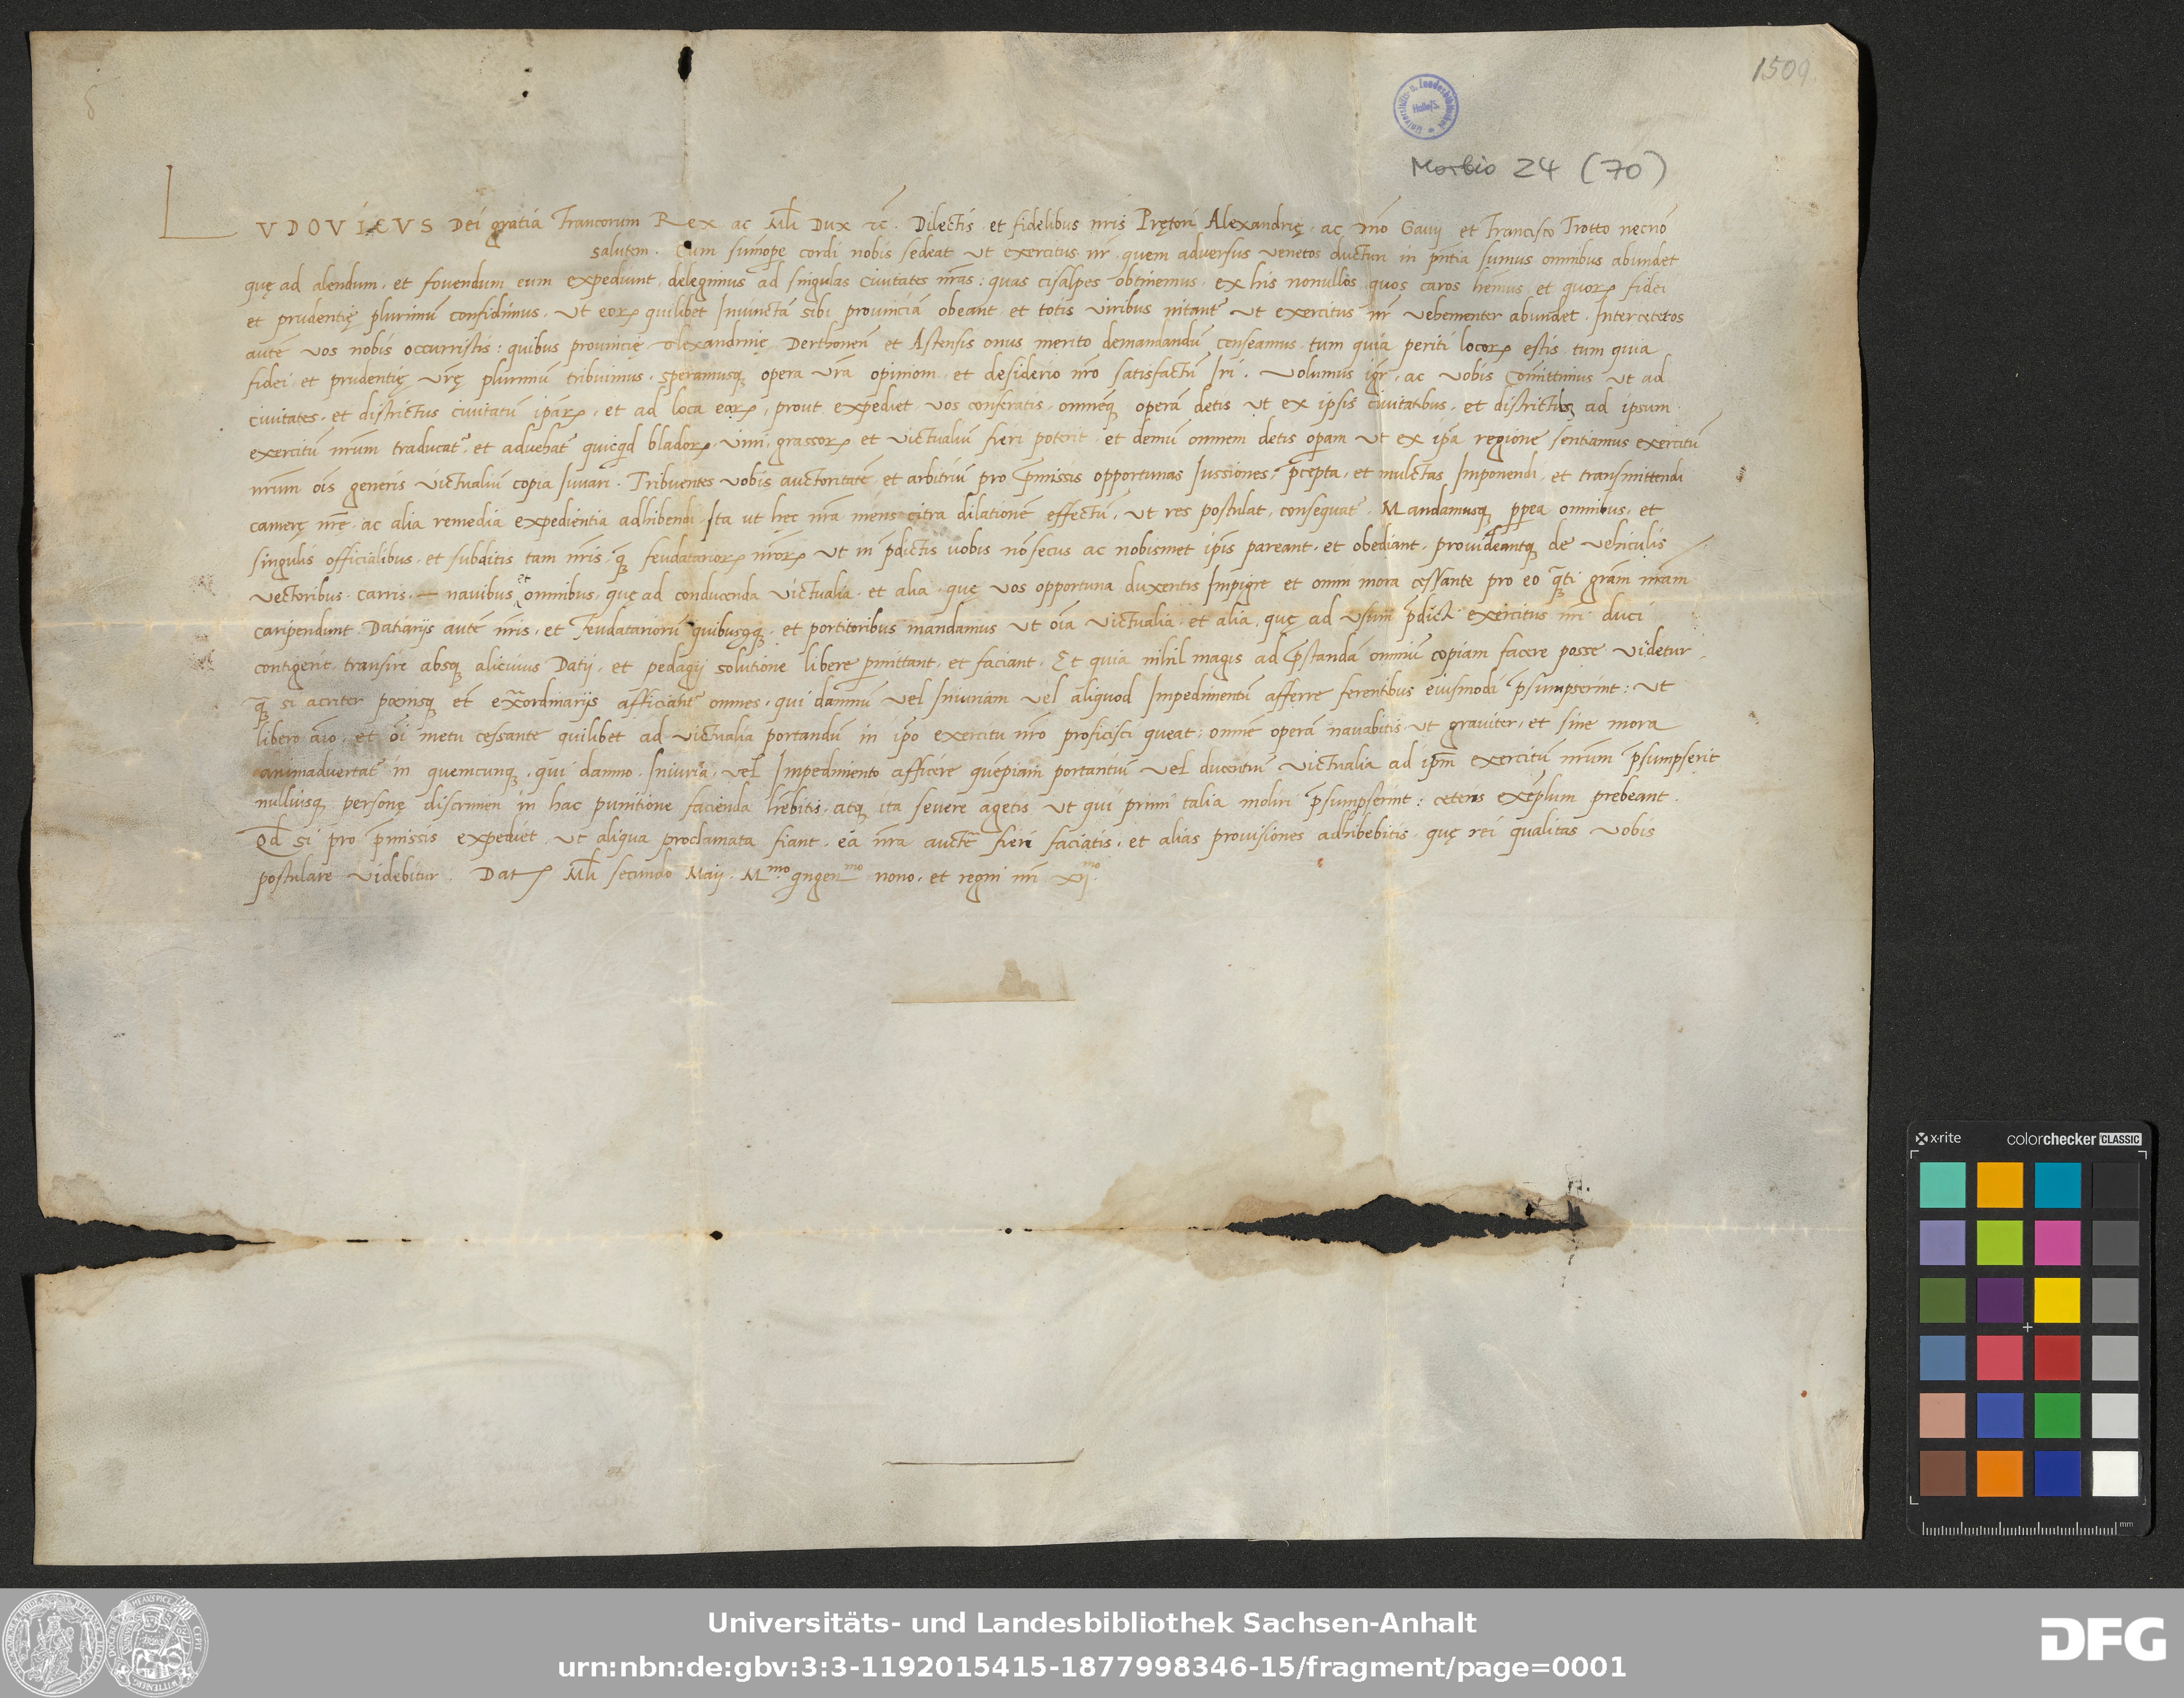 1509.
Universitäts- u. Landesbibliothek Halle/S.
Morbio 24 (70)
LVDOVICVS Dei gratia Francorum Rex ac Mli Dux rc̄. Dilectis et fidelibus nr̄is Prętori Alexandrię, ac Gauij et Francisco Trotto necnō
salutem. Cum sumope cordi nobis sedeat ut exercitus nr̄ quem adversus venetos ducturi in pn̄tia sumus omnibus abundet
quę ad alendum, et fovendum eum expediunt, delegimus ad singulas Civitates nr̄as: quas cisalpes obtinemus, ex his nonullos quos caros hēmus et quoꝝ fidei
et prudentię plurimū confidimus. Ut eoꝝ quilibet Iniunctā sibi provinciā obeant et totis viribus nitant᷑ ut exercitus nr̄ vehementer abundet. Inter cęteros
autē vos nobis occurristis: quibus provincię Alexandrinię Derthonen̄ et Astensis onus merito demandandū censeamus tum quia periti locoꝝ estis tum quia
fidei et prudentię vr̄ę plurimū tribuimus, speramusqꝫ opera vr̄a opinioni et desiderio nr̄o satisfactū Iri. Volumus igr̄, ac vobis Comittimus ut ad
civitates et districtus civitatū ipaꝝ, et ad loca eaꝝ, prout expediet vos conferatis, omnēqꝫ operā detis ut ex ipsis civitatibus, et districtibꝫ ad ipsum
exercitū nr̄um traducat᷑, et advehat᷑ quicqd bladoꝝ vini, grassoꝝ et victualiū fieri poterit, et demū omnem detis opam ut ex ipa regione sentiamus exercitū
nr̄um ois generis victualiū copia Iuvari. Tribuentes vobis auctoritatē et arbitriū pro p̄missis opportunas Iussiones, p̄cepta, et mulctas Imponendi et transmittendi
camerę nr̄ę, ac alia remedia expedientia adhibendi Ita ut hęc nr̄a mens citra dilationē effectū, ut res postulat, consequat᷑. Mandamusqꝫ pp̄ea omnibus, et
singulis officialibus, et subditis tam nr̄is, qꝫ feudatarioꝝ nr̄oꝝ ut in p̄dictis vobis nō secus ac nobismet ipis pareant, et obediant, provideantqꝫ de vehiculis
vectoribus carris navibus et omnibus, quę ad conducenda victualia, et alia, quę vos opportuna duxeritis Impigre et omni mora cessante pro eo qꝫti gr̄am nr̄am
caripendunt. Datiarijs autē nr̄is, et feudatariorū quibusqꝫ, et portitoribus mandamus ut oīa victualia, et alia, quę ad usum p̄dicti exercitus nr̄i duci
contigerit, transire absqꝫ alicuius Datij, et pedagij solutione libere pmittant, et faciant. Et quia nihil magis ad p̄standā omniū copiam facere posse videtur
qꝫ si acriter poenisqꝫ et ex̄ordinarijs afficiant᷑ omnes, qui damnū vel Iniuriam vel aliquod Impedimentū afferre ferentibus eiusmodi p̄sumpserint: ut
libero aīo et oi metu cessante quilibet ad victualia portandū in ipo exercitu nr̄o proficisci queat: omnē operā navabitis ut graviter, et sine mora
animadvertat᷑ in quemcunqꝫ, qui damno, Iniuria, vel Impedimento afficere quēpiam portantiū vel ducentiū victualia ad ipm exercitū nr̄um p̄sumpserit
nulliusqꝫ personę discrimen in hac punitione facienda hēbitis, atqꝫ ita severe agetis ut qui primi talia moliri p̄sumpserint: ceteris exēplum prebeant.
Qd si pro p̄missis expediet ut aliqua proclamata fiant, ea nr̄a auctē fieri faciatis, et alias provisiones adhibebitis, quę rei qualitas vobis
postulare videbitur. Datꝝ Mli secundo Maij. Mmo. qngenmo nono, et regni nr̄i xijmo.
x-rite colorchecker CLASSIC
mm
Universitäts- und Landesbibliothek Sachsen-Anhalt
urn:nbn:de:gbv:3:3-1192015415-1877998346-15/fragment/page=0001
DFG